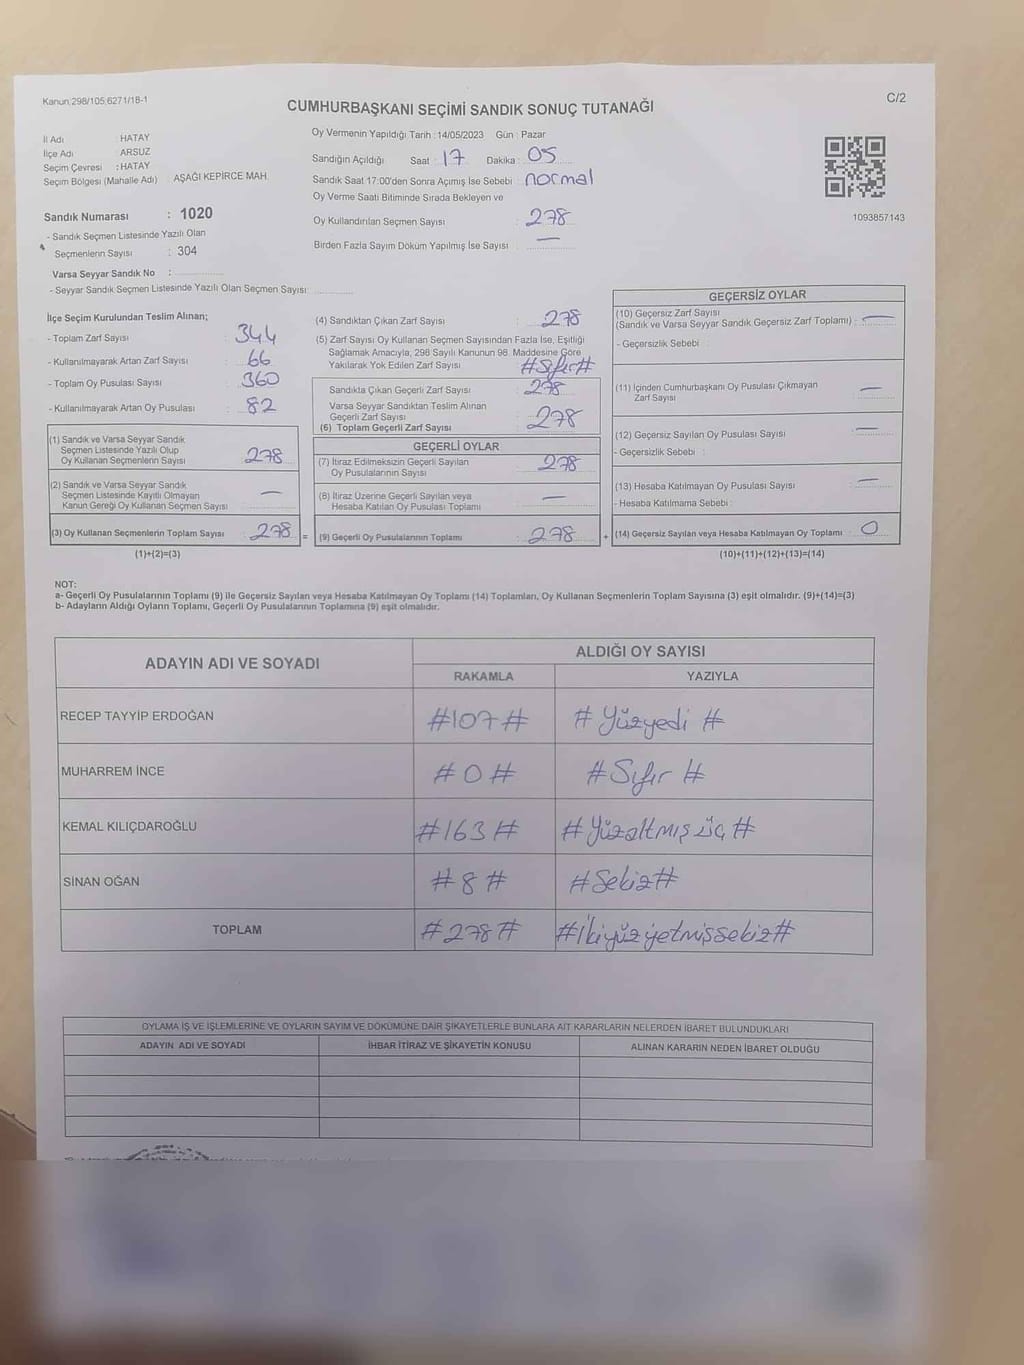 Kanun;298/105,6271/18-1
C/2
CUMHURBAŞKANI SEÇİMİ SANDIK SONUÇ TUTANAĞI
İl Adı : HATAY
İlçe Adı : ARSUZ
Seçim Çevresi : HATAY
Seçim Bölgesi (Mahalle Adı) : AŞAĞI KEPİRCE MAH.
Sandık Numarası : 1020
- Sandık Seçmen Listesinde Yazılı Olan
Seçmenlerin Sayısı : 304
Varsa Seyyar Sandık No :
- Seyyar Sandık Seçmen Listesinde Yazılı Olan Seçmen Sayısı:
Oy Vermenin Yapıldığı Tarih : 14/05/2023 Gün : Pazar
Sandığın Açıldığı Saat : 17 Dakika : 05
Sandık Saat 17:00'den Sonra Açımış İse Sebebi : normal
Oy Verme Saati Bitiminde Sırada Bekleyen ve
Oy Kullandırılan Seçmen Sayısı : 278
Birden Fazla Sayım Döküm Yapılmış İse Sayısı : —
1093857143
İlçe Seçim Kurulundan Teslim Alınan;
- Toplam Zarf Sayısı : 344
- Kullanılmayarak Artan Zarf Sayısı : 66
- Toplam Oy Pusulası Sayısı : 360
- Kullanılmayarak Artan Oy Pusulası : 82
(1) Sandık ve Varsa Seyyar Sandık
Seçmen Listesinde Yazılı Olup
Oy Kullanan Seçmenlerin Sayısı : 278
(2) Sandık ve Varsa Seyyar Sandık
Seçmen Listesinde Kayıtlı Olmayan
Kanun Gereği Oy Kullanan Seçmen Sayısı : —
(3) Oy Kullanan Seçmenlerin Toplam Sayısı : 278
(1)+(2)=(3)
(4) Sandıktan Çıkan Zarf Sayısı : 278
(5) Zarf Sayısı Oy Kullanan Seçmen Sayısından Fazla İse, Eşitliği
Sağlamak Amacıyla, 298 Sayılı Kanunun 98. Maddesine Göre
Yakılarak Yok Edilen Zarf Sayısı : #Sıfır#
Sandıkta Çıkan Geçerli Zarf Sayısı : 278
Varsa Seyyar Sandıktan Teslim Alınan
Geçerli Zarf Sayısı :
(6) Toplam Geçerli Zarf Sayısı : 278
GEÇERLİ OYLAR
(7) İtiraz Edilmeksizin Geçerli Sayılan
Oy Pusulalarının Sayısı : 278
(8) İtiraz Üzerine Geçerli Sayılan veya
Hesaba Katılan Oy Pusulası Toplamı : —
= (9) Geçerli Oy Pusulalarının Toplamı : 278
GEÇERSİZ OYLAR
(10) Geçersiz Zarf Sayısı
(Sandık ve Varsa Seyyar Sandık Geçersiz Zarf Toplamı) : —
- Geçersizlik Sebebi :
(11) İçinden Cumhurbaşkanı Oy Pusulası Çıkmayan
Zarf Sayısı : —
(12) Geçersiz Sayılan Oy Pusulası Sayısı : —
- Geçersizlik Sebebi :
(13) Hesaba Katılmayan Oy Pusulası Sayısı : —
- Hesaba Katılmama Sebebi :
+ (14) Geçersiz Sayılan veya Hesaba Katılmayan Oy Toplamı : 0
(10)+(11)+(12)+(13)=(14)
NOT:
a- Geçerli Oy Pusulalarının Toplamı (9) ile Geçersiz Sayılan veya Hesaba Katılmayan Oy Toplamı (14) Toplamları, Oy Kullanan Seçmenlerin Toplam Sayısına (3) eşit olmalıdır. (9)+(14)=(3)
b- Adayların Aldığı Oyların Toplamı, Geçerli Oy Pusulalarının Toplamına (9) eşit olmalıdır.
ADAYIN ADI VE SOYADI
ALDIĞI OY SAYISI
RAKAMLA YAZIYLA
RECEP TAYYİP ERDOĞAN #107# #Yüzyedi#
MUHARREM İNCE #0# #Sıfır#
KEMAL KILIÇDAROĞLU #163# #Yüzaltmış üç#
SİNAN OĞAN #8# #Sekiz#
TOPLAM #278# #İkiyüz yetmişsekiz#
OYLAMA İŞ VE İŞLEMLERİNE VE OYLARIN SAYIM VE DÖKÜMÜNE DAİR ŞİKAYETLERLE BUNLARA AİT KARARLARIN NELERDEN İBARET BULUNDUKLARI
ADAYIN ADI VE SOYADI İHBAR İTİRAZ VE ŞİKAYETİN KONUSU ALINAN KARARIN NEDEN İBARET OLDUĞU